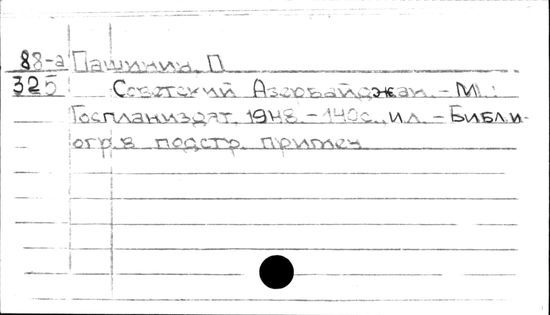 88-а Пашинин, П
325 Советский Азербайджан. - М.:
Госпланиздат, 1948. - 140с., ил. - Библи-
огр. в подстр. примеч